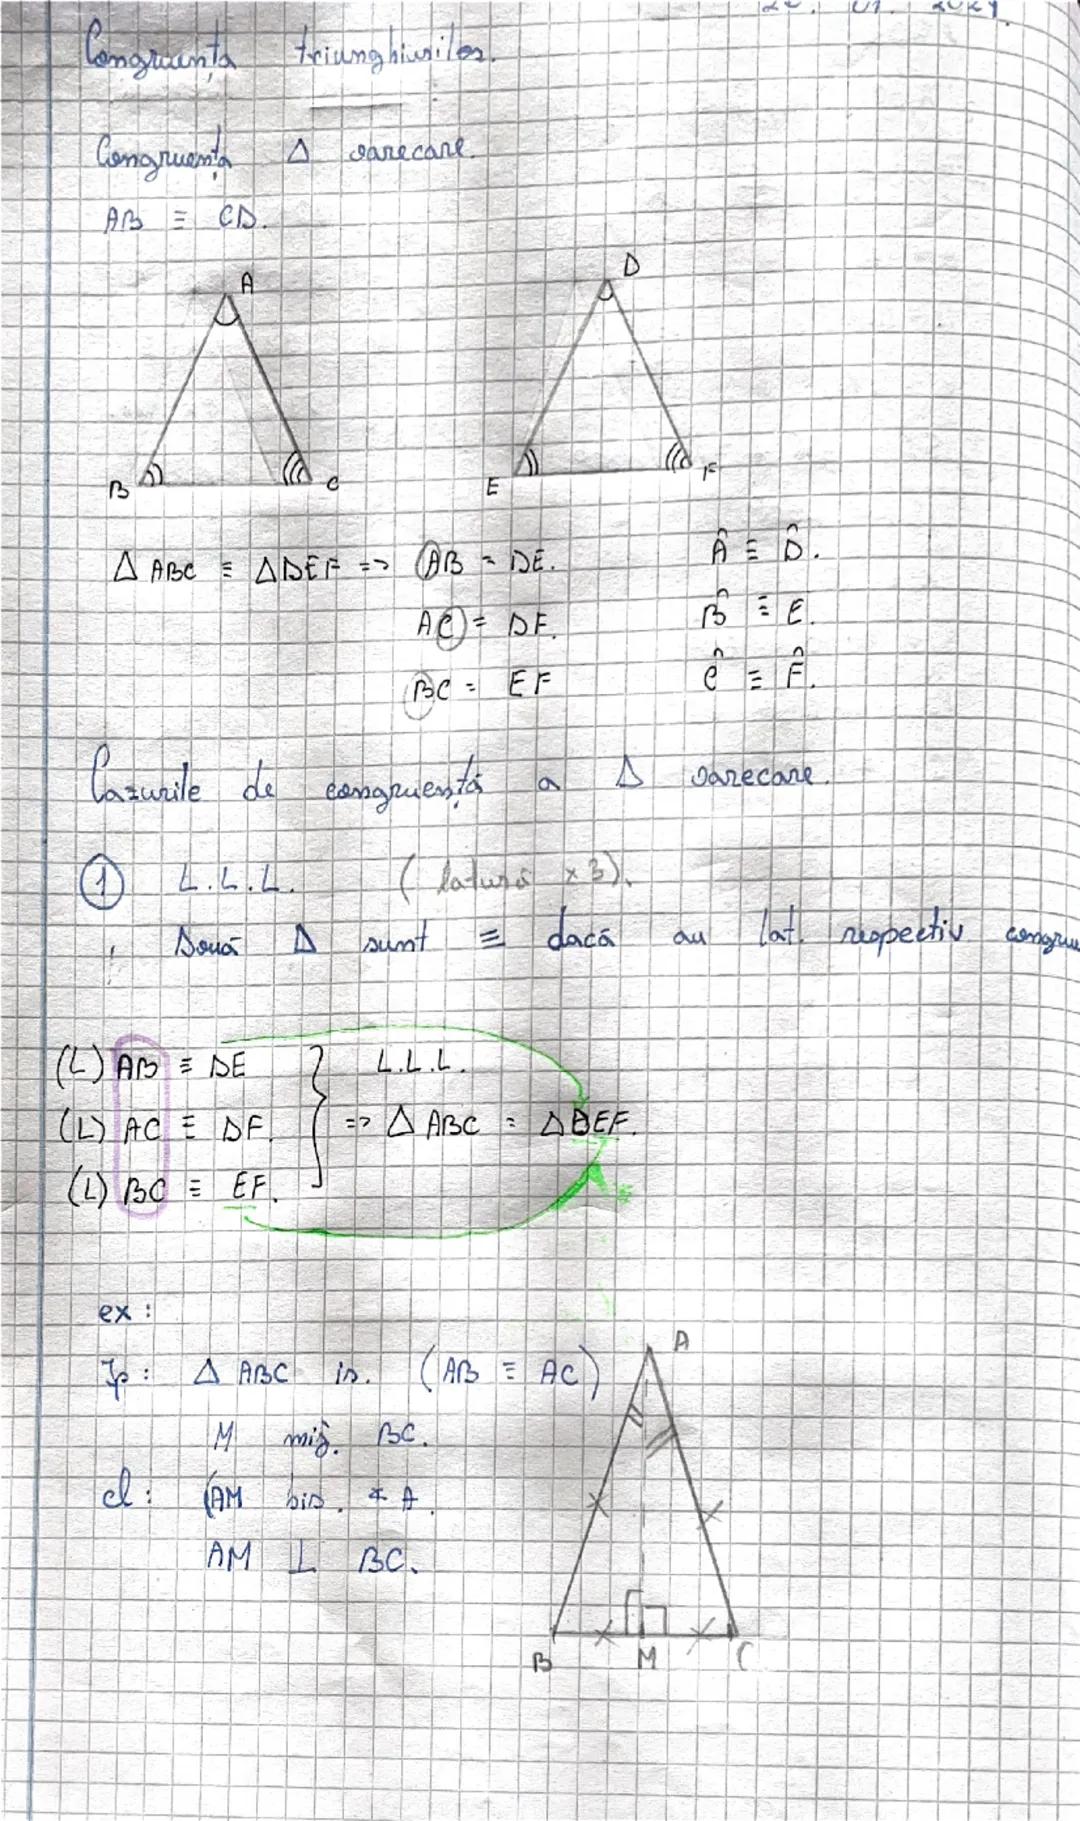 Congruența triunghiurilor.
Congruența Δ oarecare.
AB ≡ CD.
A
D
B
C
E
F
Δ ABC ≡ Δ DEF => AB = DE. Â ≡ D̂.
AC = DF. B̂ ≡ E.
BC = EF Ĉ ≡ F̂.
Cazurile de congruență a Δ oarecare.
① L.L.L. (latură x 3).
Două Δ sunt ≡ dacă au lat. respectiv congru
(L) AB ≡ DE } L.L.L.
(L) AC ≡ DF. => Δ ABC = Δ DEF.
(L) BC ≡ EF.
ex:
A
Ip: Δ ABC is. (AB ≡ AC)
M mij. BC.
cl: (AM bis. ∢ A.
AM ⊥ BC.
B M C